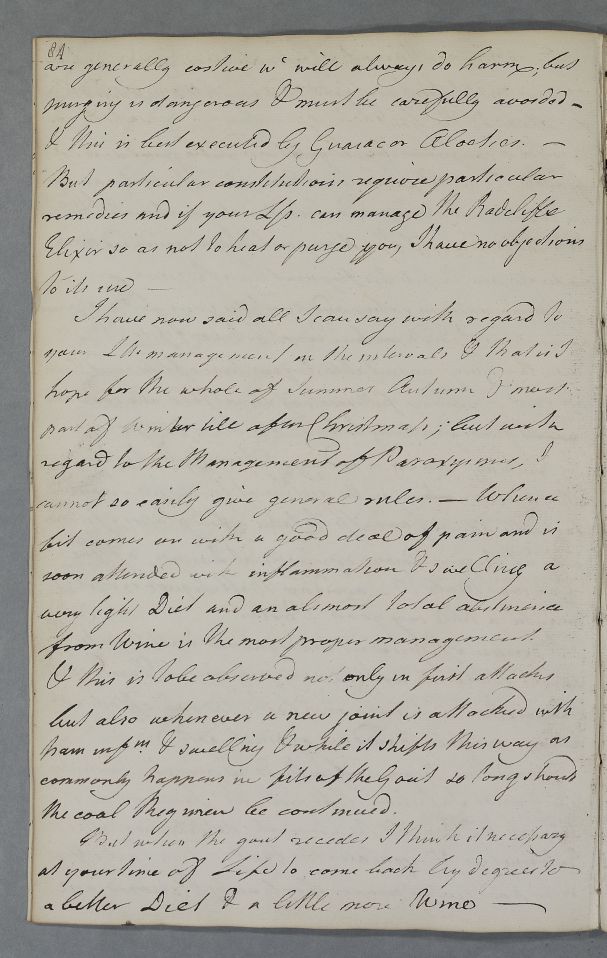 84
are generally costive wc will always do harm, but
purging is dangerous & must be carefully avoided –
& this is best executed by Guaiac or Aloetics. —
But particular constitutions require particular
remedies and if your Lp. can manage the Radcliffe
Elixir so as not to heat or purge you, I have no objections
to its use —
I have now said all I can say with regard to
your management on the intervals & that is I
hope for the whole of Summer Autumn & most
part of winter till after Christmass; but with
regard to the Management of Paroxysms, I
cannot so easily give general rules. — When a
bit comes on with a good deal of pain and is
soon attended with inflammation & swelling a
very light Diet and an almost total abstinence
from Wine is the most proper management
& this is to be observed not only in first attacks
but also whenever a new joint is attacked with
& swelling & while it shifts this way as
commonly happens in fits of the Gout so long should
the cool Regimen be continued.
But when the gout recedes I think it necessary
at your time of Life to come back by degrees to
a better Diet & a little more Wine —